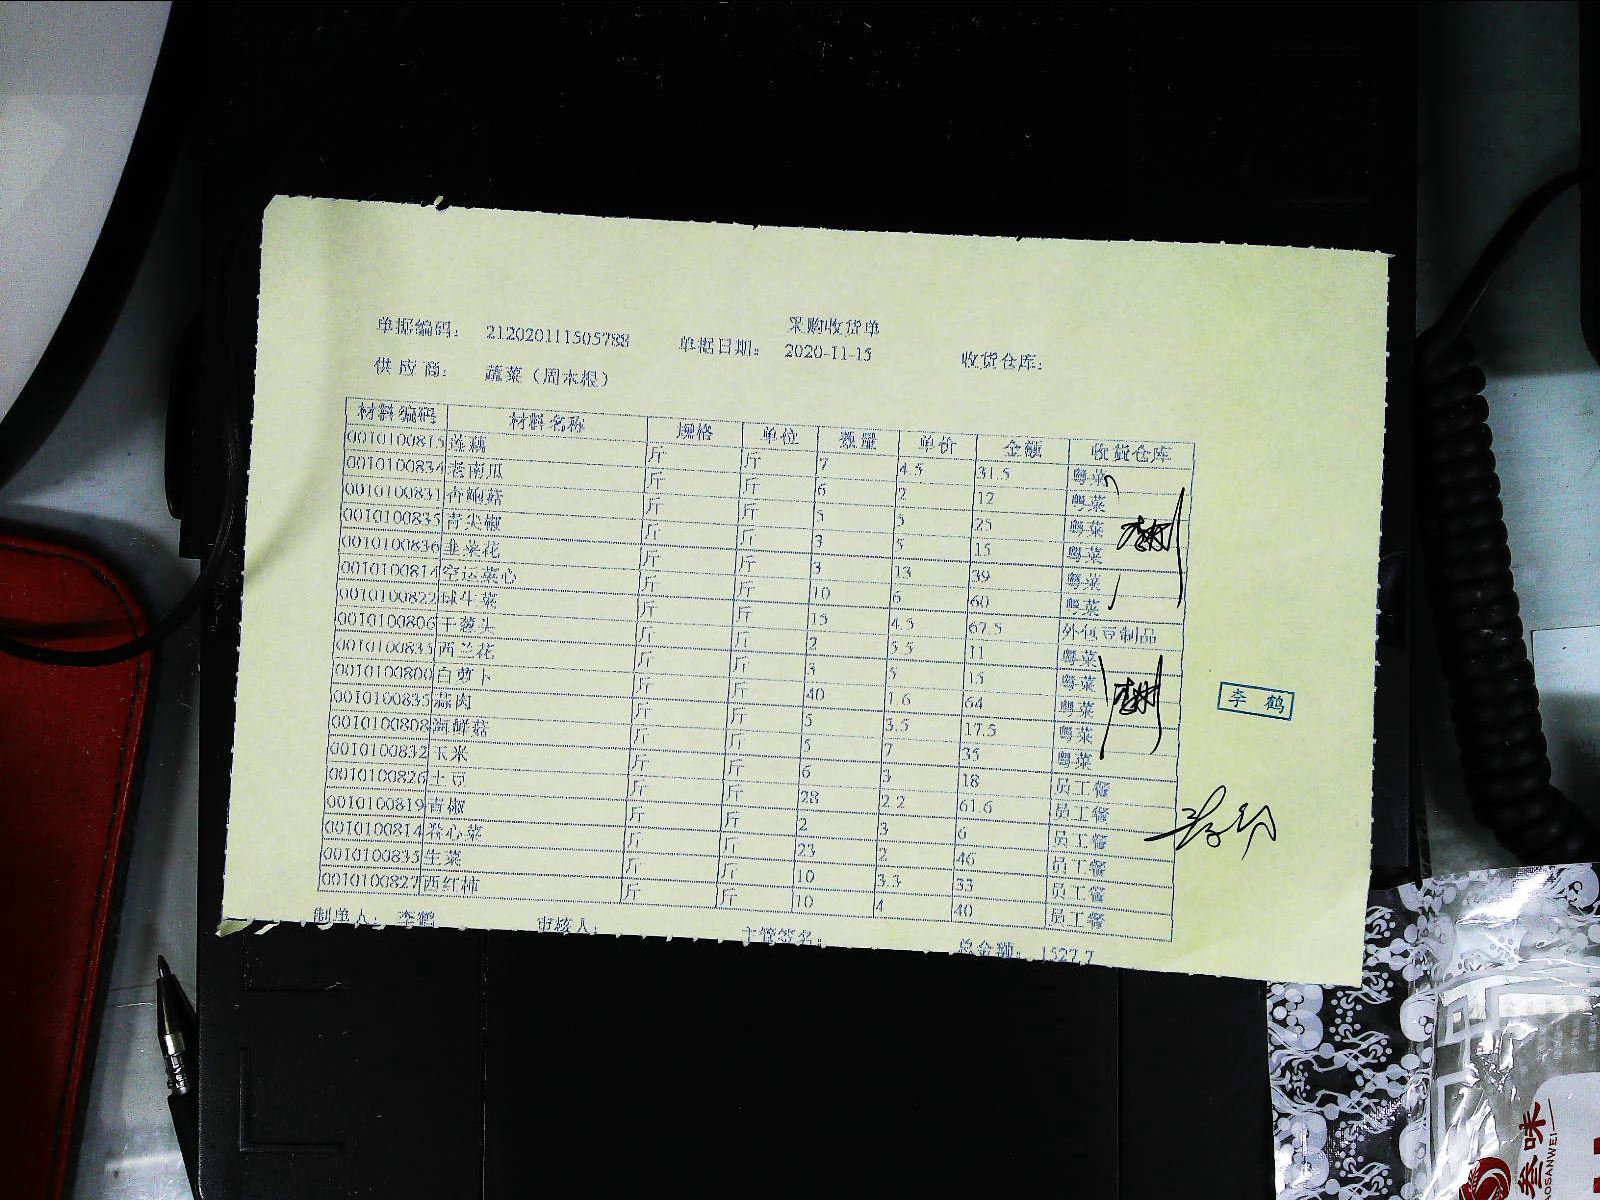 采购收货单
单据编码： 212020111505788 单据日期： 2020-11-15 收货仓库：
供应商： 蔬菜（周本根）
材料编码 材料名称 规格 单位 数量 单价 金额 收货仓库
0010100815 莲藕 斤 斤 7 4.5 31.5 粤菜
0010100834 老南瓜 斤 斤 6 2 12 粤菜
0010100831 香鲍菇 斤 斤 5 5 25 粤菜
0010100835 青尖椒 斤 斤 3 5 15 粤菜
0010100836 韭菜花 斤 斤 3 13 39 粤菜
0010100814 空运菜心 斤 斤 10 6 60 粤菜
0010100822 球生菜 斤 斤 15 4.5 67.5 外包豆制品
0010100806 干葱头 斤 斤 2 5.5 11 粤菜
0010100835 西兰花 斤 斤 3 5 15 粤菜
0010100800 白萝卜 斤 斤 40 1.6 64 粤菜
0010100835 蒜肉 斤 斤 5 3.5 17.5 粤菜
0010100808 海鲜菇 斤 斤 5 7 35 粤菜
0010100832 玉米 斤 斤 6 3 18 员工餐
0010100826 土豆 斤 斤 28 2.2 61.6 员工餐
0010100819 青椒 斤 斤 2 3 6 员工餐
0010100814 卷心菜 斤 斤 23 2 46 员工餐
0010100835 生菜 斤 斤 10 3.3 33 员工餐
0010100827 西红柿 斤 斤 10 4 40 员工餐
李鹤
制单人： 李鹤 审核人： 主管签名： 总金额： 1527.7
叁味
OSANWEI